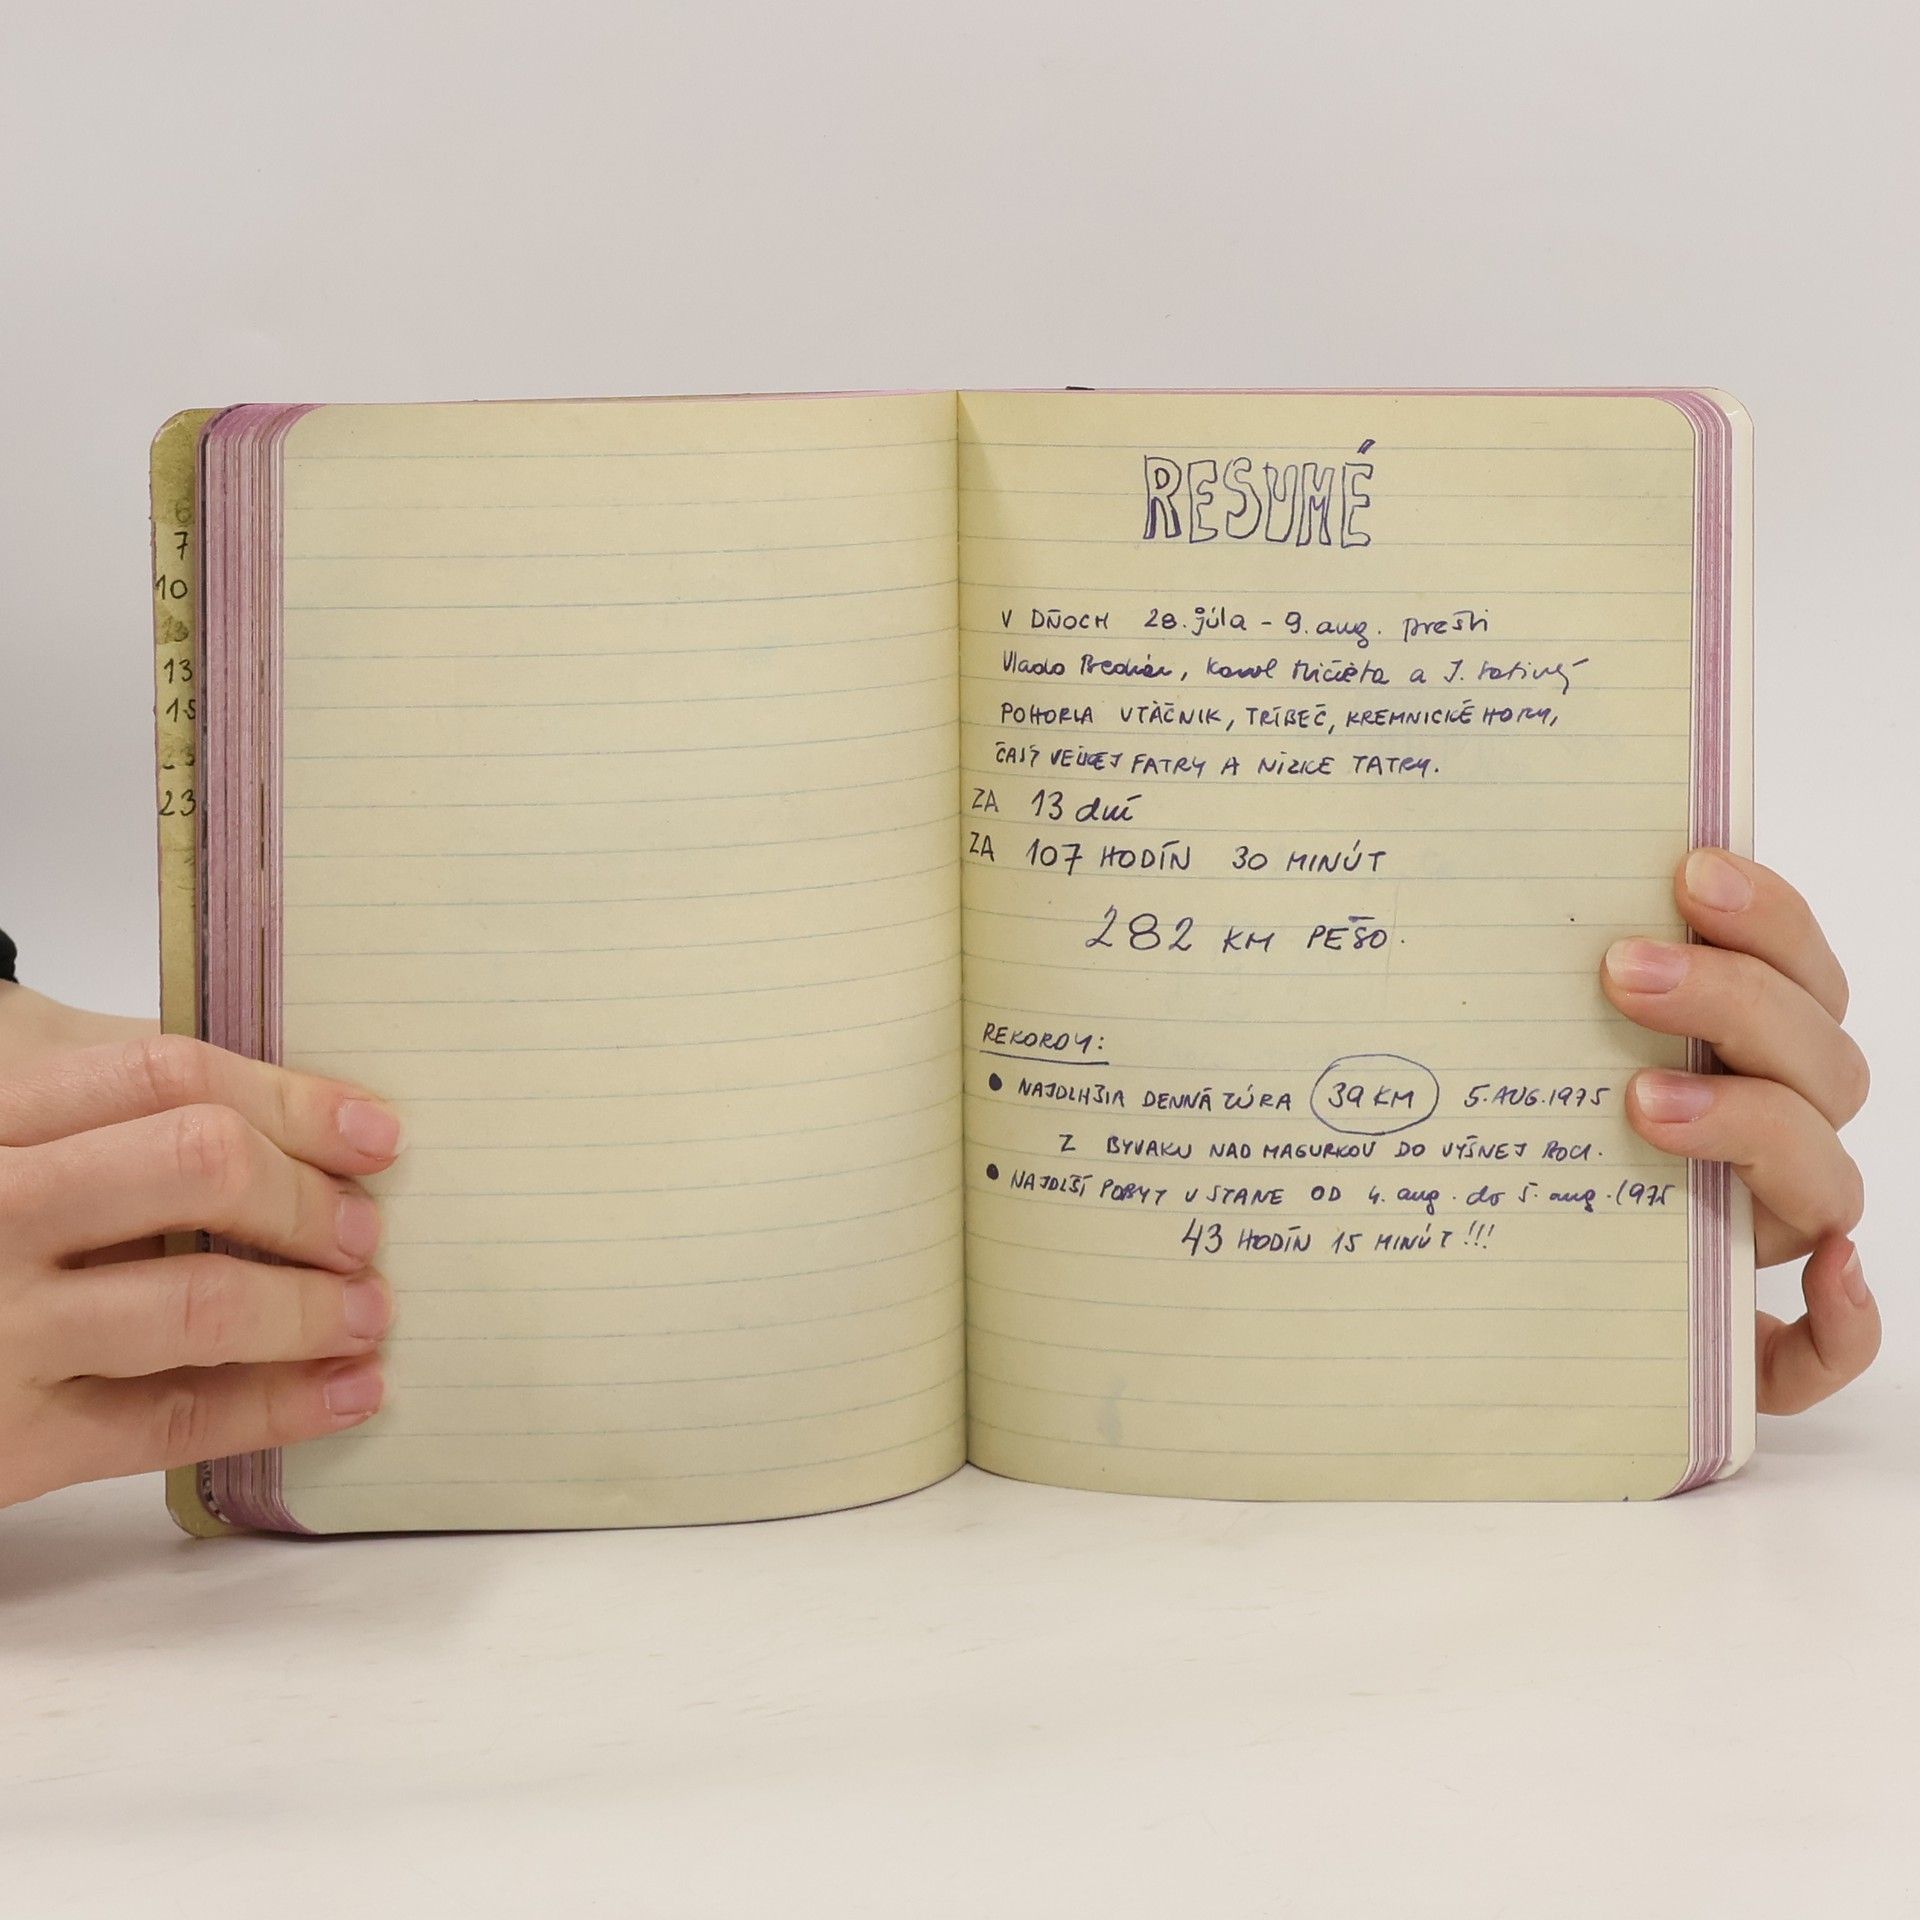 6
7
10
13
13
15
23
23
RESUMÉ
V DŇOCH 28. júla - 9. aug. prešli
Vlado, Karol Mičieta a J.
POHORIA VTÁČNIK, TRÍBEČ, KREMNICKÉ HORY,
ČASŤ VEĽKEJ FATRY A NÍZKE TATRY.
ZA 13 dní
ZA 107 HODÍN 30 MINÚT
282 KM PEŠO.
REKORDY:
● NAJDLHŠIA DENNÁ TÚRA 39 KM 5. AUG. 1975
Z BYVAKU NAD MAGURKOU DO VYŠNEJ BOCI.
● NAJDLŠÍ POBYT V STANE OD 4. aug. do 5. aug. 1975
43 HODÍN 15 MINÚT !!!